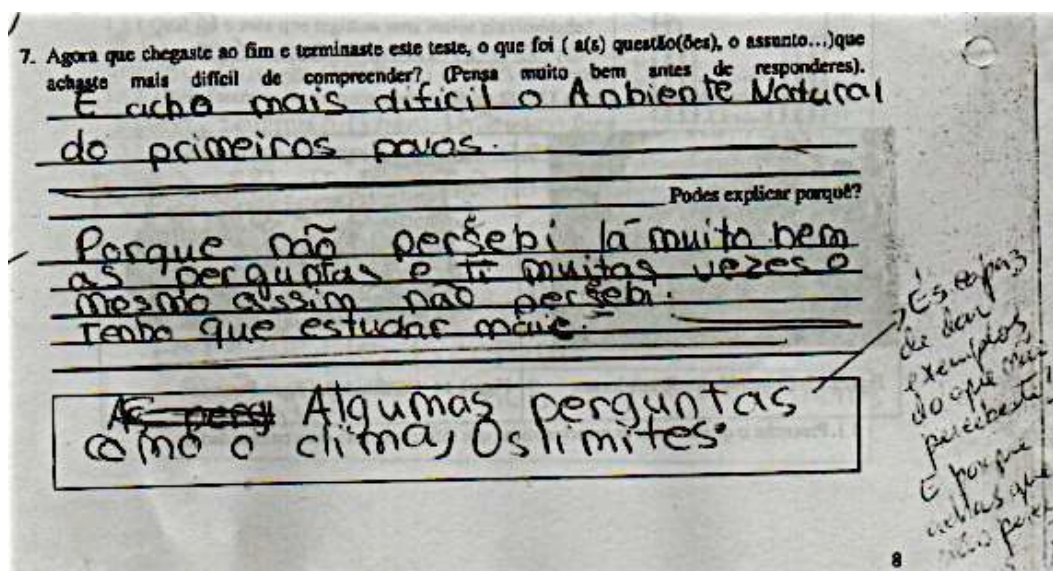 7. Agora que chegaste ao fim e terminaste este teste, o que foi ( a(s) questão(ões), o assunto...)que
achaste mais difícil de compreender? (Pensa muito bem antes de responderes).
E acho mais dificil o Anbiente Natural
do primeiros povos.
Podes explicar porquê?
Porque não persebi lá muito bem
as perguntas e li muitas vezes o
mesmo assim não persebi.
Tenho que estudar mais.
As perg Algumas perguntas
como o clima, os limites.
És capaz
de dar
exemplos
do que não
percebeste?
E porque
achas que
não
8